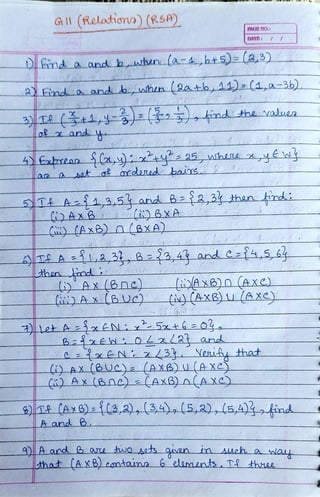 G11 (Relations) (RSA)
PAGE NO.:
DATE: / /
1) Find a and b, when (a-1, b+5) = (2,3)
2) Find a and b, when (2a+b, 11) = (1, a-3b).
3) If (x/3+1, y-2/3) = (5/3, 1/3), find the values
of x and y.
4) Express {(x,y): x²+y² = 25, where x, y ∈ W}
as a set of ordered pairs.
5) If A = {1,3,5} and B = {2,3} then find:
(i) A×B (ii) B×A
(iii) (A×B) ∩ (B×A)
6) If A = {1,2,3}, B = {3,4} and C = {4,5,6}
then find:
(i) A×(B∩C) (ii) (A×B) ∩ (A×C)
(iii) A×(B∪C) (iv) (A×B) ∪ (A×C)
7) Let A = {x∈N: x²-5x+6=0},
B = {x∈W: 0≤x<2} and
C = {x∈N: x<3}. Verify that
(i) A×(B∪C) = (A×B) ∪ (A×C)
(ii) A×(B∩C) = (A×B) ∩ (A×C)
8) If (A×B) = {(3,2), (3,4), (5,2), (5,4)}, find
A and B.
9) A and B are two sets given in such a way
that (A×B) contains 6 elements. If three